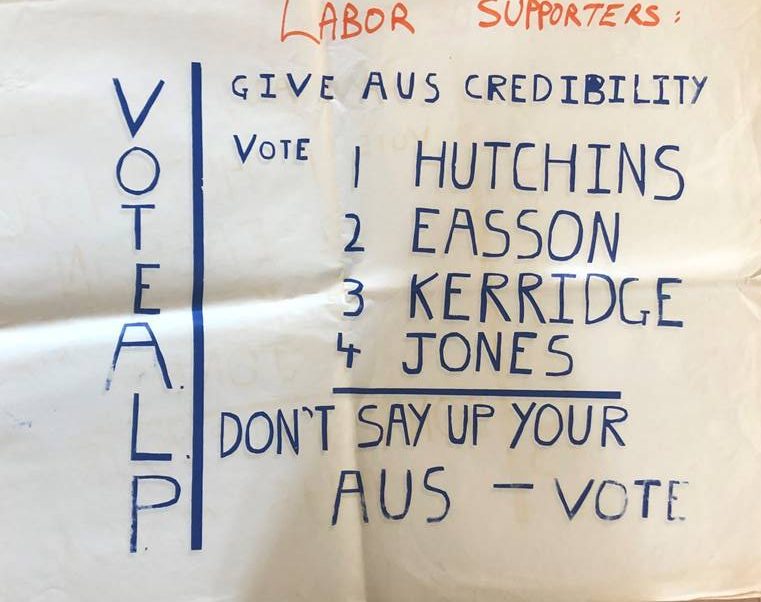 LABOR SUPPORTERS:
VOTE A.L.P
GIVE AUS CREDIBILITY
VOTE 1 HUTCHINS
2 EASSON
3 KERRIDGE
4 JONES
DON'T SAY UP YOUR
AUS - VOTE